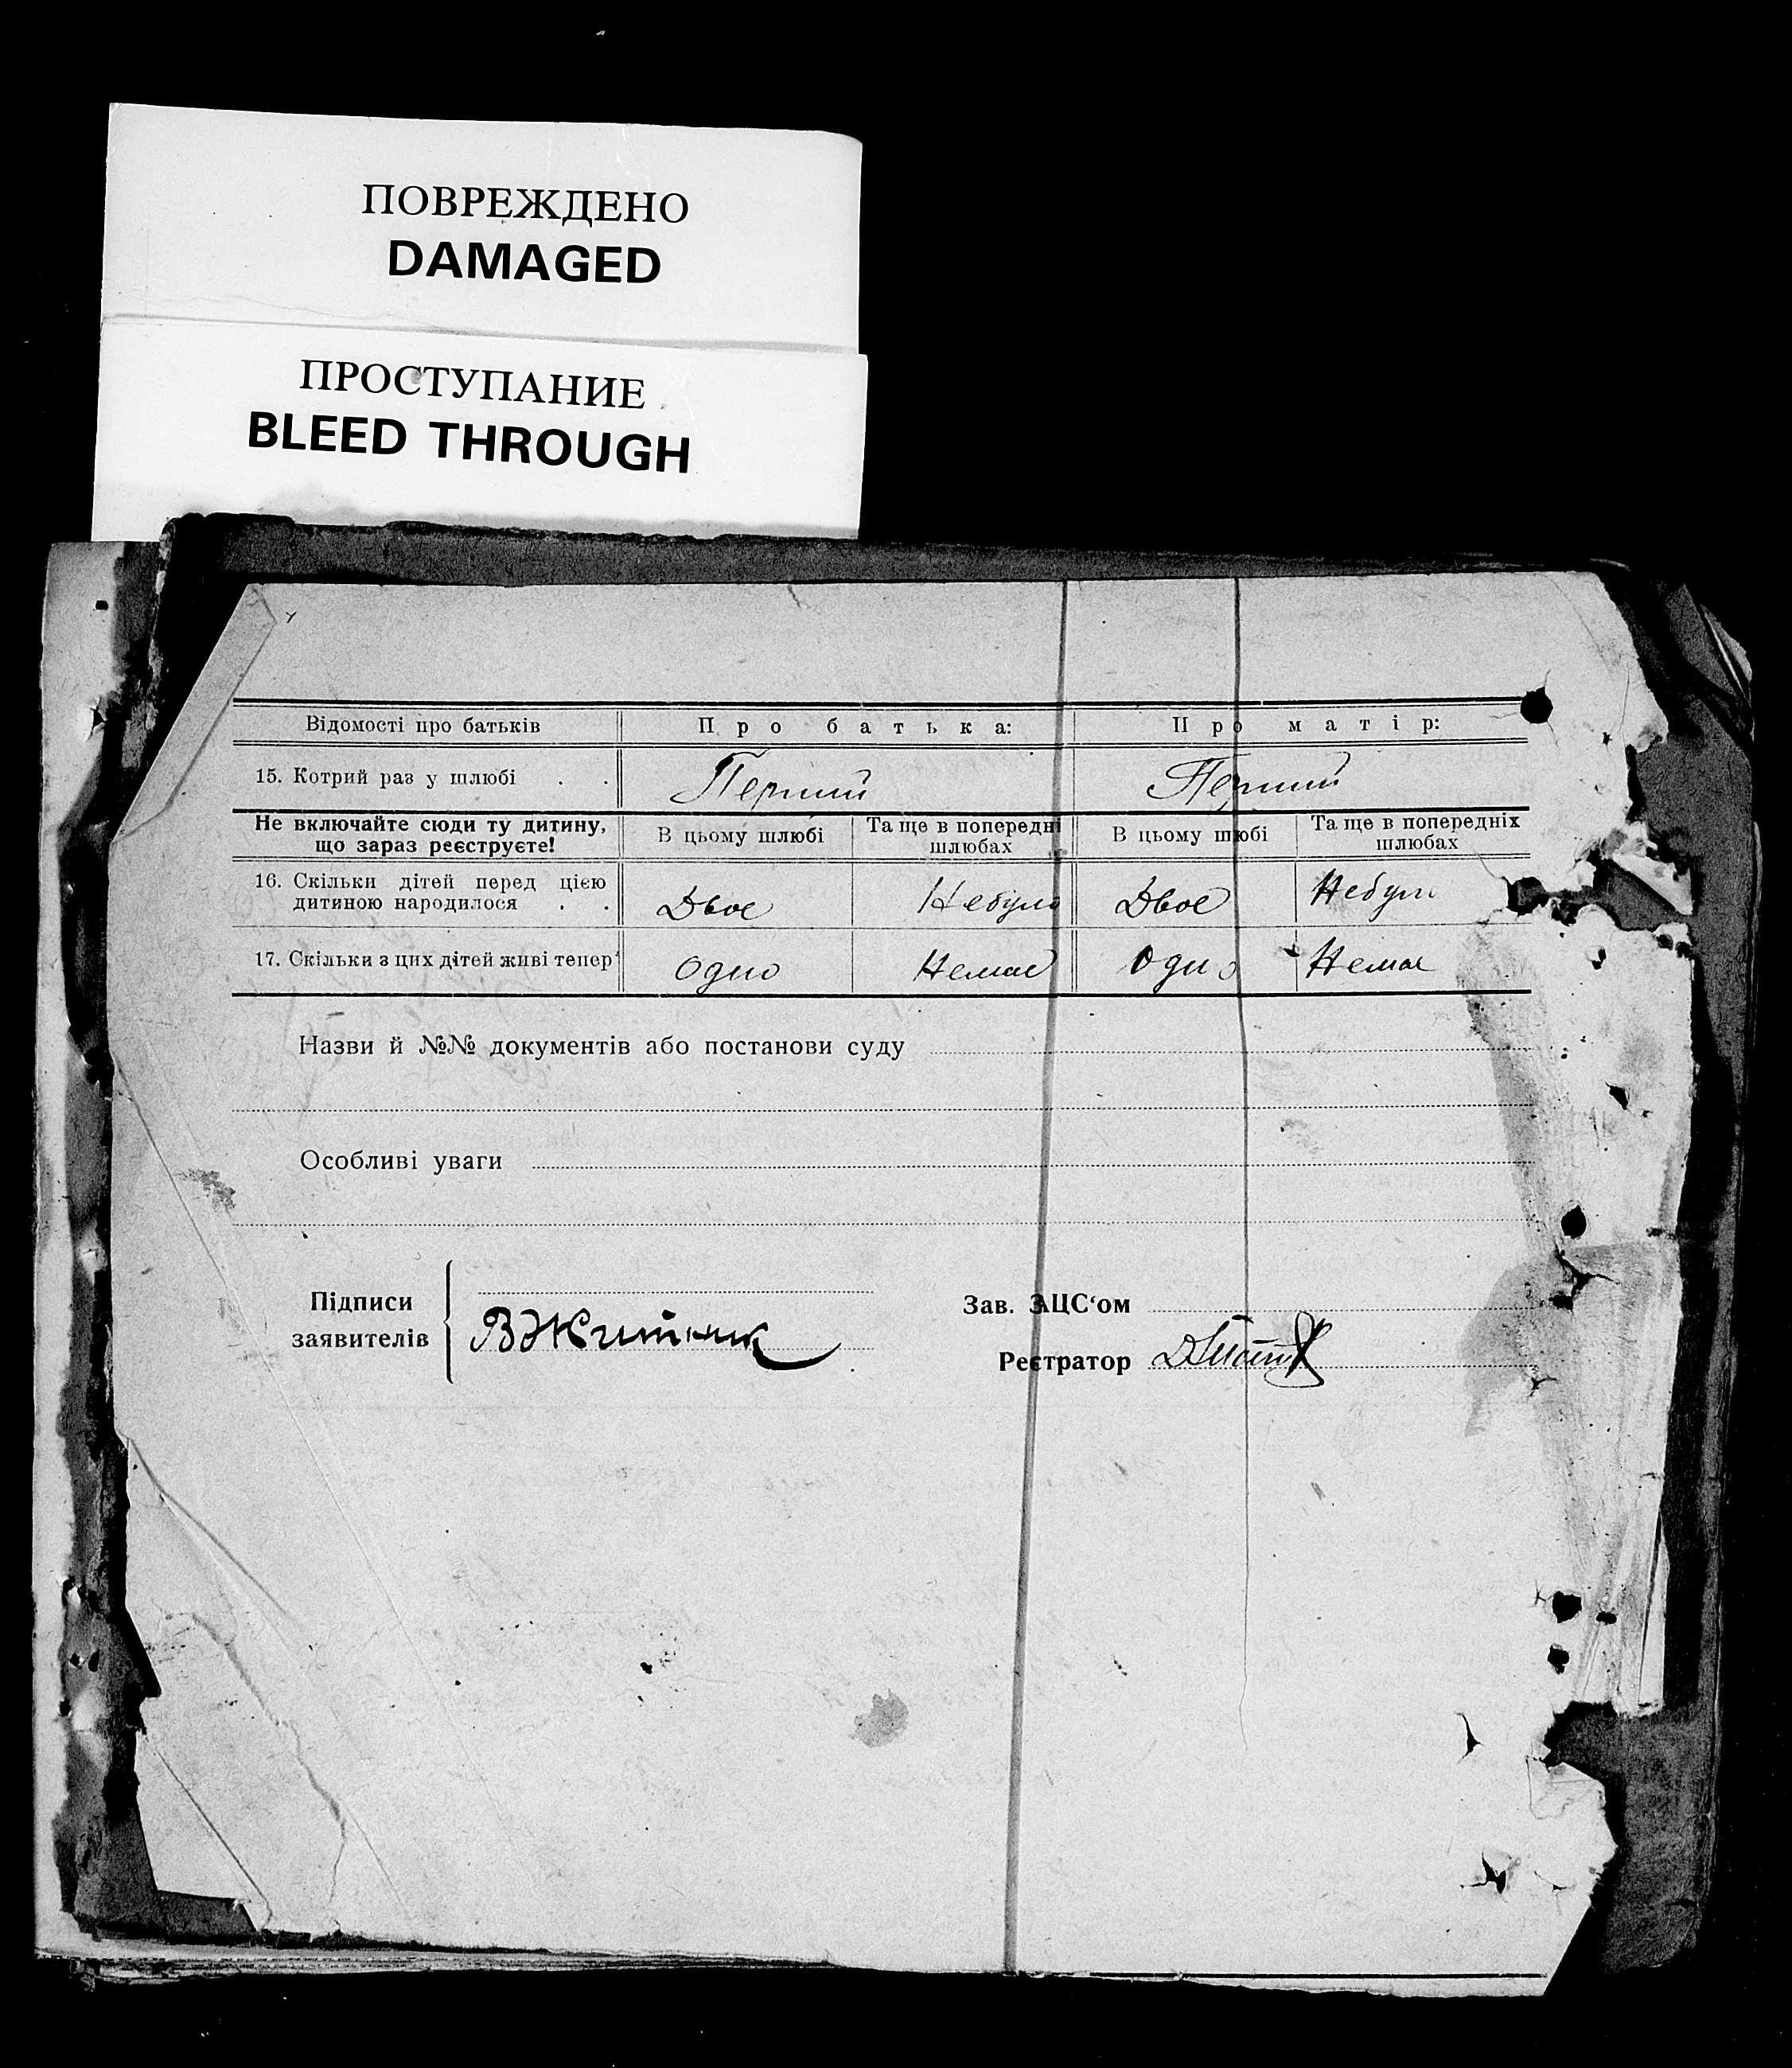 ПОВРЕЖДЕНО
DAMAGED
ПРОСТУПАНИЕ
BLEED THROUGH
Відомості про батьків Про батька: Про матір:
15. Котрий раз у шлюбі . . Перший Перший
Не включайте сюди ту дитину, що зараз реєструєте! В цьому шлюбі Та ще в попередні шлюбах В цьому шлюбі Та ще в попередніх шлюбах
16. Скільки дітей перед цією
дитиною народилося . . Двоє Небуло Двоє Небули
17. Скільки з цих дітей живі тепер Одно Немає Одно Немає
Назви й №№ документів або постанови суду
Особливі уваги
Підписи
заявителів В Житник
Зав. ЗАЦС‘ом
Реєстратор